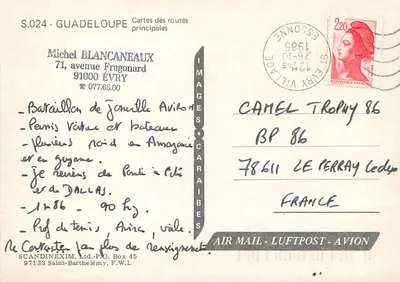 S.024 - GUADELOUPE
Cartes des routes
principales
Michel BLANCANEAUX
71, avenue Fragonard
91000 ÉVRY
☎ 077.65.00
- Bataillon de Joinville Aviron
- Permis Voiture et bateau
- plusieurs raid en Amazonie
et en guyane.
- Je reviens de Pointe à Pitre
et de DALLAS.
- 1m86 - 90 kg.
- Prof de tennis, Aviron, voile.
Me Contacter par plus de renseignement.
SCANDINEXIM, Ltd.-P.O. Box 45
97133 Saint-Barthélémy, F.W.I.
IMAGES CARAIBES
AIR MAIL - LUFTPOST - AVION
91 EVRY VILLAGE
ESSONNE
26-10
1985
2,20
CAMEL TROPHY 86
BP 86
78611 LE PERRAY Cedex
FRANCE